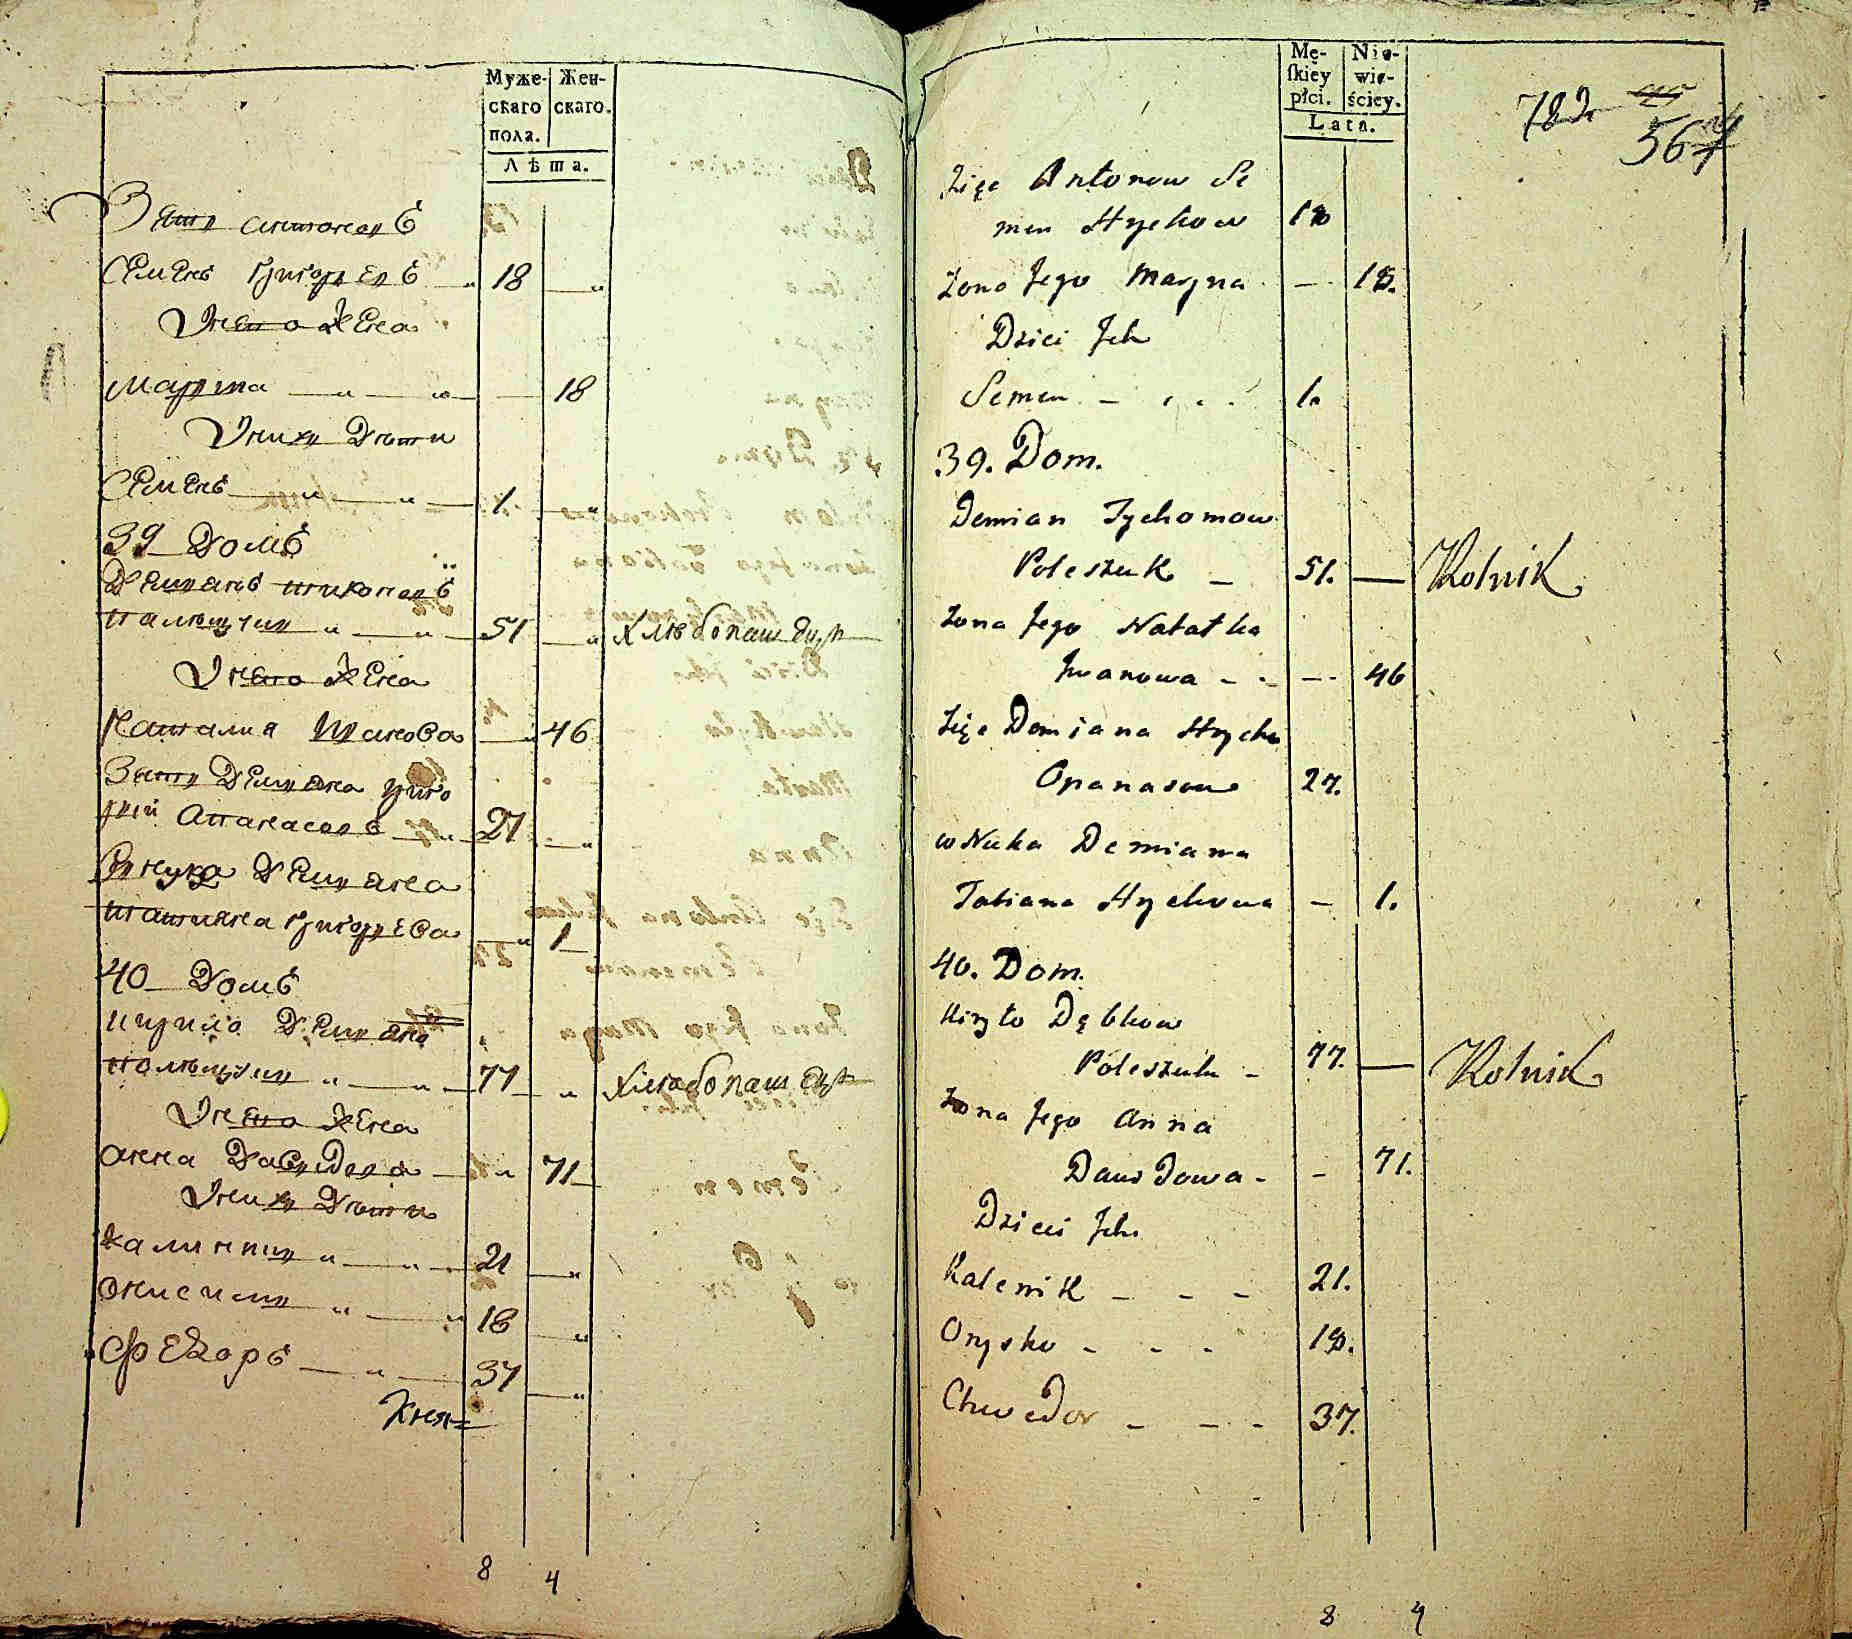 Муже- Жен-
скаго скаго.
пола.
Лѣта.
Зять антоновъ
Семенъ Григорьевъ 18
У него жена
Марина 18
У нихъ Дѣти
Семенъ 1
39 Домъ
Демьянъ
Палещукъ 51 Хлѣбопашецъ
У него жена
Наталия 46
Зять Демьяна Григо
рий Апанасовъ 27
внука Демьяна
татияна Григорьева 1
40 Домъ
Кирило Демьянов
полещукъ 77 Хлѣбопашецъ
У него жена
анна Давидова 71
У нихъ Дѣти
калиникъ 21
онисимъ 18
Федоръ 37
8 4
Mę- Nie-
ſkiey wie-
płci. ściey.
Lata.
782 567
Zięc Antonow Se
men Hryckow 18
Zona Jego Maryna 18.
Dzieci Jch
Semen 1.
39. Dom.
Demian Tychonow
Poleszuk 51. Rolnik
Zona Jego Natalka
Jwanowa 46
Zięc Demiana Hrycko
Opanasow 27.
wNuka Demiana
Tatiana Hrychowa 1.
40. Dom.
Kiryło Dębkow
Poleszuk 77. Rolnik
Zona Jego Anna
Dawidowa 71.
Dzieci Jch
Kalenik 21.
Onysko 18.
Chwedor 37.
8 4